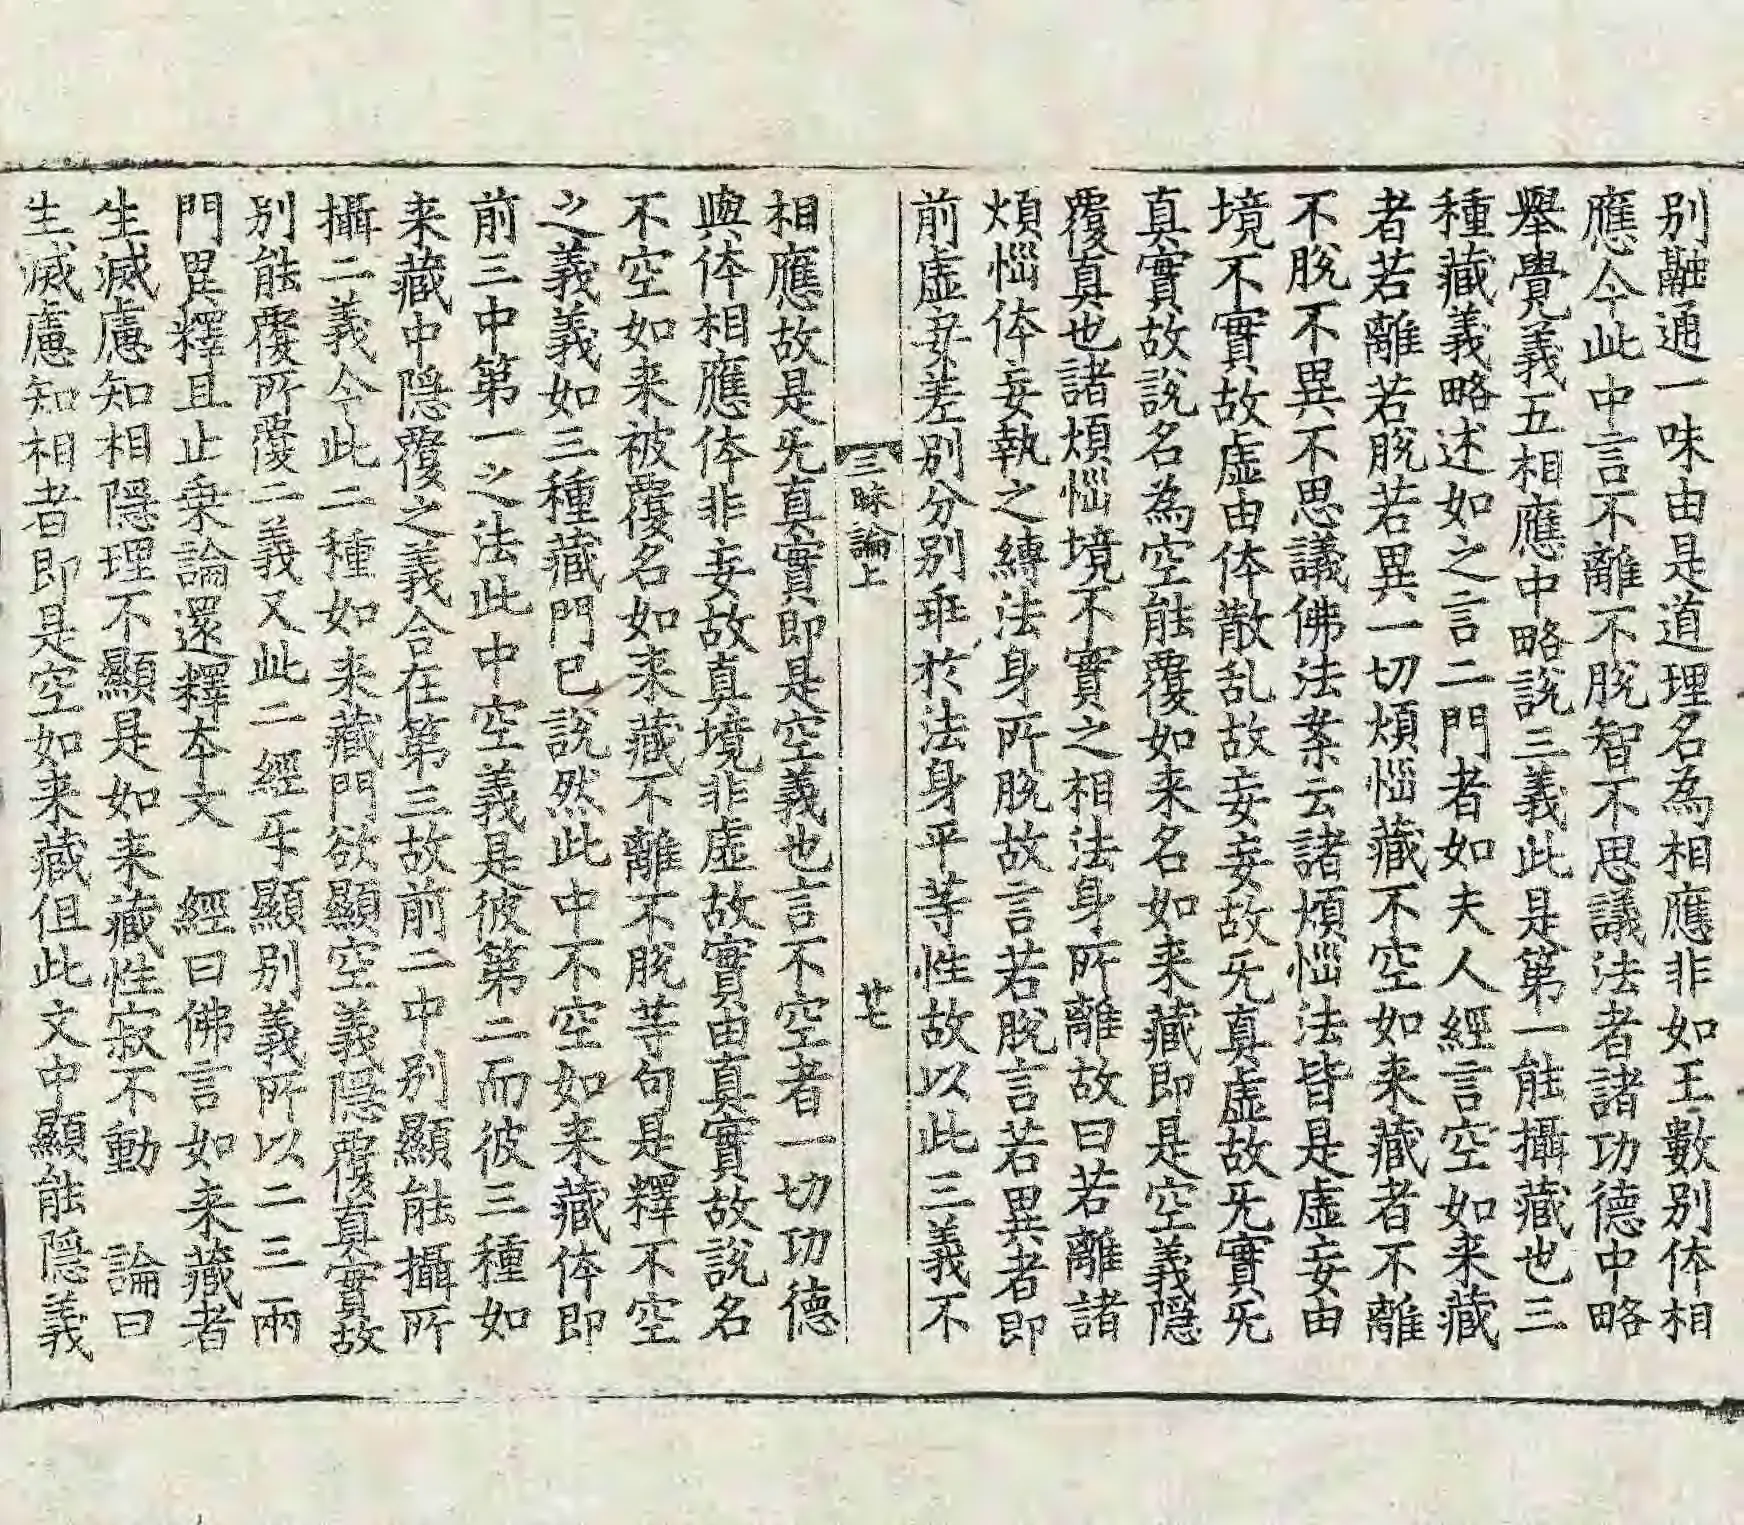 别融通一味由是道理名為相應非如王數别体相
應今此中言不離不脫智不思議法者諸功德中略
舉覺義五相應中略說三義此是第一能攝藏也三
種藏義略述如之言二門者如夫人經言空如来藏
者若離若脫若異一切煩惱藏不空如来藏者不離
不脫不異不思議佛法案云諸煩惱法皆是虛妄由
境不實故虛由体散乱故妄妄故旡真虛故旡實旡
真實故說名為空能覆如来名如来藏即是空義隱
覆真也諸煩惱境不實之相法身所離故曰若離諸
煩惱体妄執之縛法身所脫故言若脫言若異者即
前虛妄差别分别乖於法身平等性故以此三義不
三昧論上 廿七
相應故是旡真實即是空義也言不空者一切功德
與体相應体非妄故真境非虛故實由真實故說名
不空如来被覆名如来藏不離不脫等句是釋不空
之義義如三種藏門已說然此中不空如来藏体即
前三中第一之法此中空義是彼第二而彼三種如
来藏中隱覆之義合在第三故前二中别顯能攝所
攝二義今此二種如来藏門欲顯空義隱覆真實故
别能覆所覆二義又此二經牙顯别義所以二三兩
門異釋且止乗論還釋本文 經曰佛言如来藏者
生滅慮知相隱理不顯是如来藏性寂不動 論曰
生滅慮知相者即是空如来藏伹此文中顯能隱義